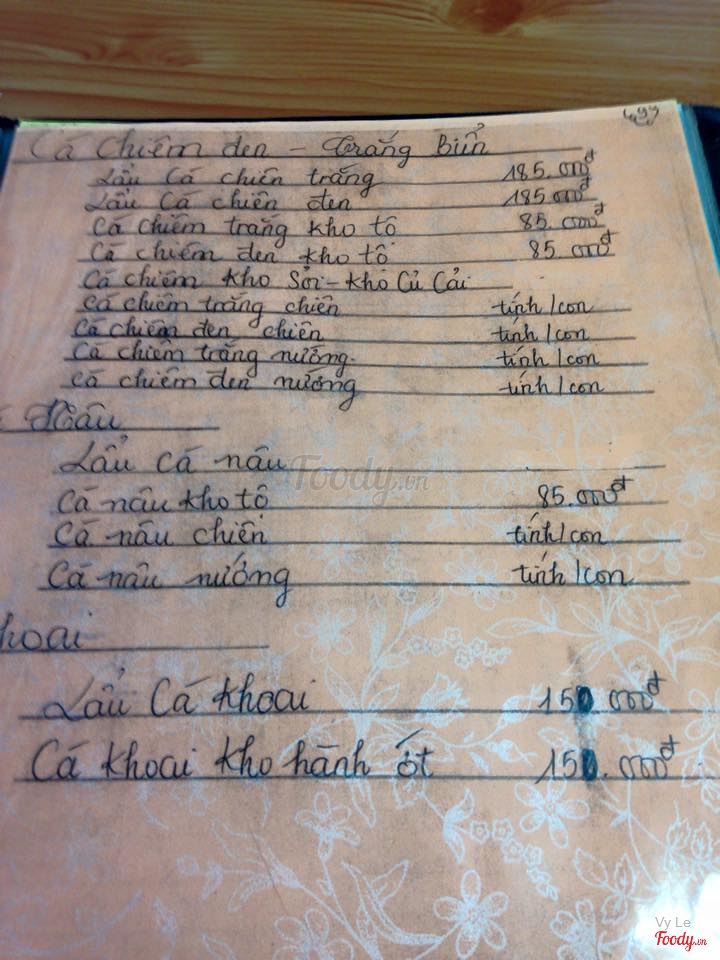 Cá chiêm đen - Trắng Biển
Lẩu Cá chiên trắng 185.000đ
Lẩu Cá chiên đen 185.000đ
Cá chiêm trắng kho tộ 85.000đ
Cá chiêm đen kho tộ 85.000đ
Cá chiêm kho Sởi - Kho Củ Cải
Cá chiêm trắng chiên tính/con
Cá chiêm đen chiên tính/con
Cá chiêm trắng nướng. tính/con
Cá chiêm đen nướng tính/con
Nâu
Lẩu cá nâu
Cá nâu kho tộ 85.000đ
Cá nâu chiên tính/con
Cá nâu nướng tính/con
hoai
Lẩu Cá khoai 150.000đ
Cá khoai kho hành ớt 150.000đ
Foody.vn
Vy Le
Foody.vn